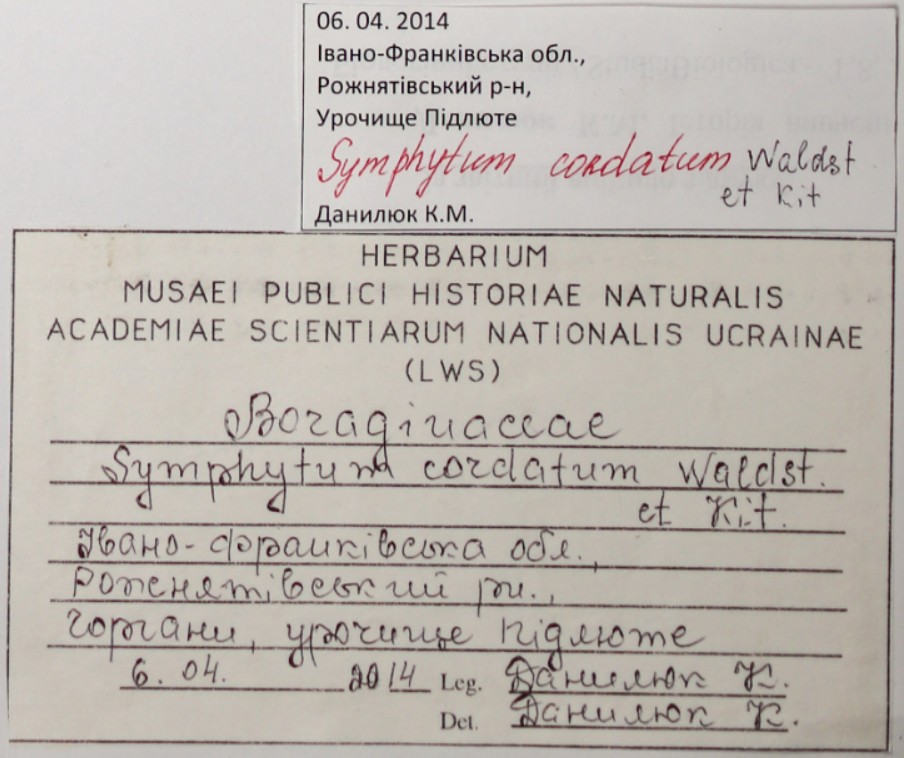 06. 04. 2014
Івано-Франківська обл.,
Рожнятівський р-н,
Урочище Підлюте
Symphytum cordatum Waldst
et Kit
Данилюк К.М.
HERBARIUM
MUSAEI PUBLICI HISTORIAE NATURALIS
ACADEMIAE SCIENTIARUM NATIONALIS UCRAINAE
(LWS)
Boraginaceae
Symphytum cordatum Waldst.
et Kit.
Івано-Франківська обл.,
Рожнятівський рн.,
Горгани, урочище Підлюте
6. 04. 2014 Leg. Данилюк К.
Det. Данилюк К.